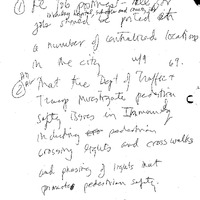 ① Re job postings - that
including digital, television and
jobs should be posted at
a number of centralized locations
in the city
69.
② That the Dept of Traffic &
Transp investigate pedestrian
Safety Issues in
including pedestrian
crossing signals and crosswalks
and phasing of lights that
promote pedestrian safety.
C